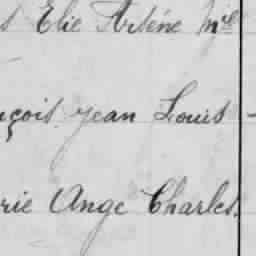 s Elie Arsène Mel
nçois Jean Louis -
rie Ange Charles.